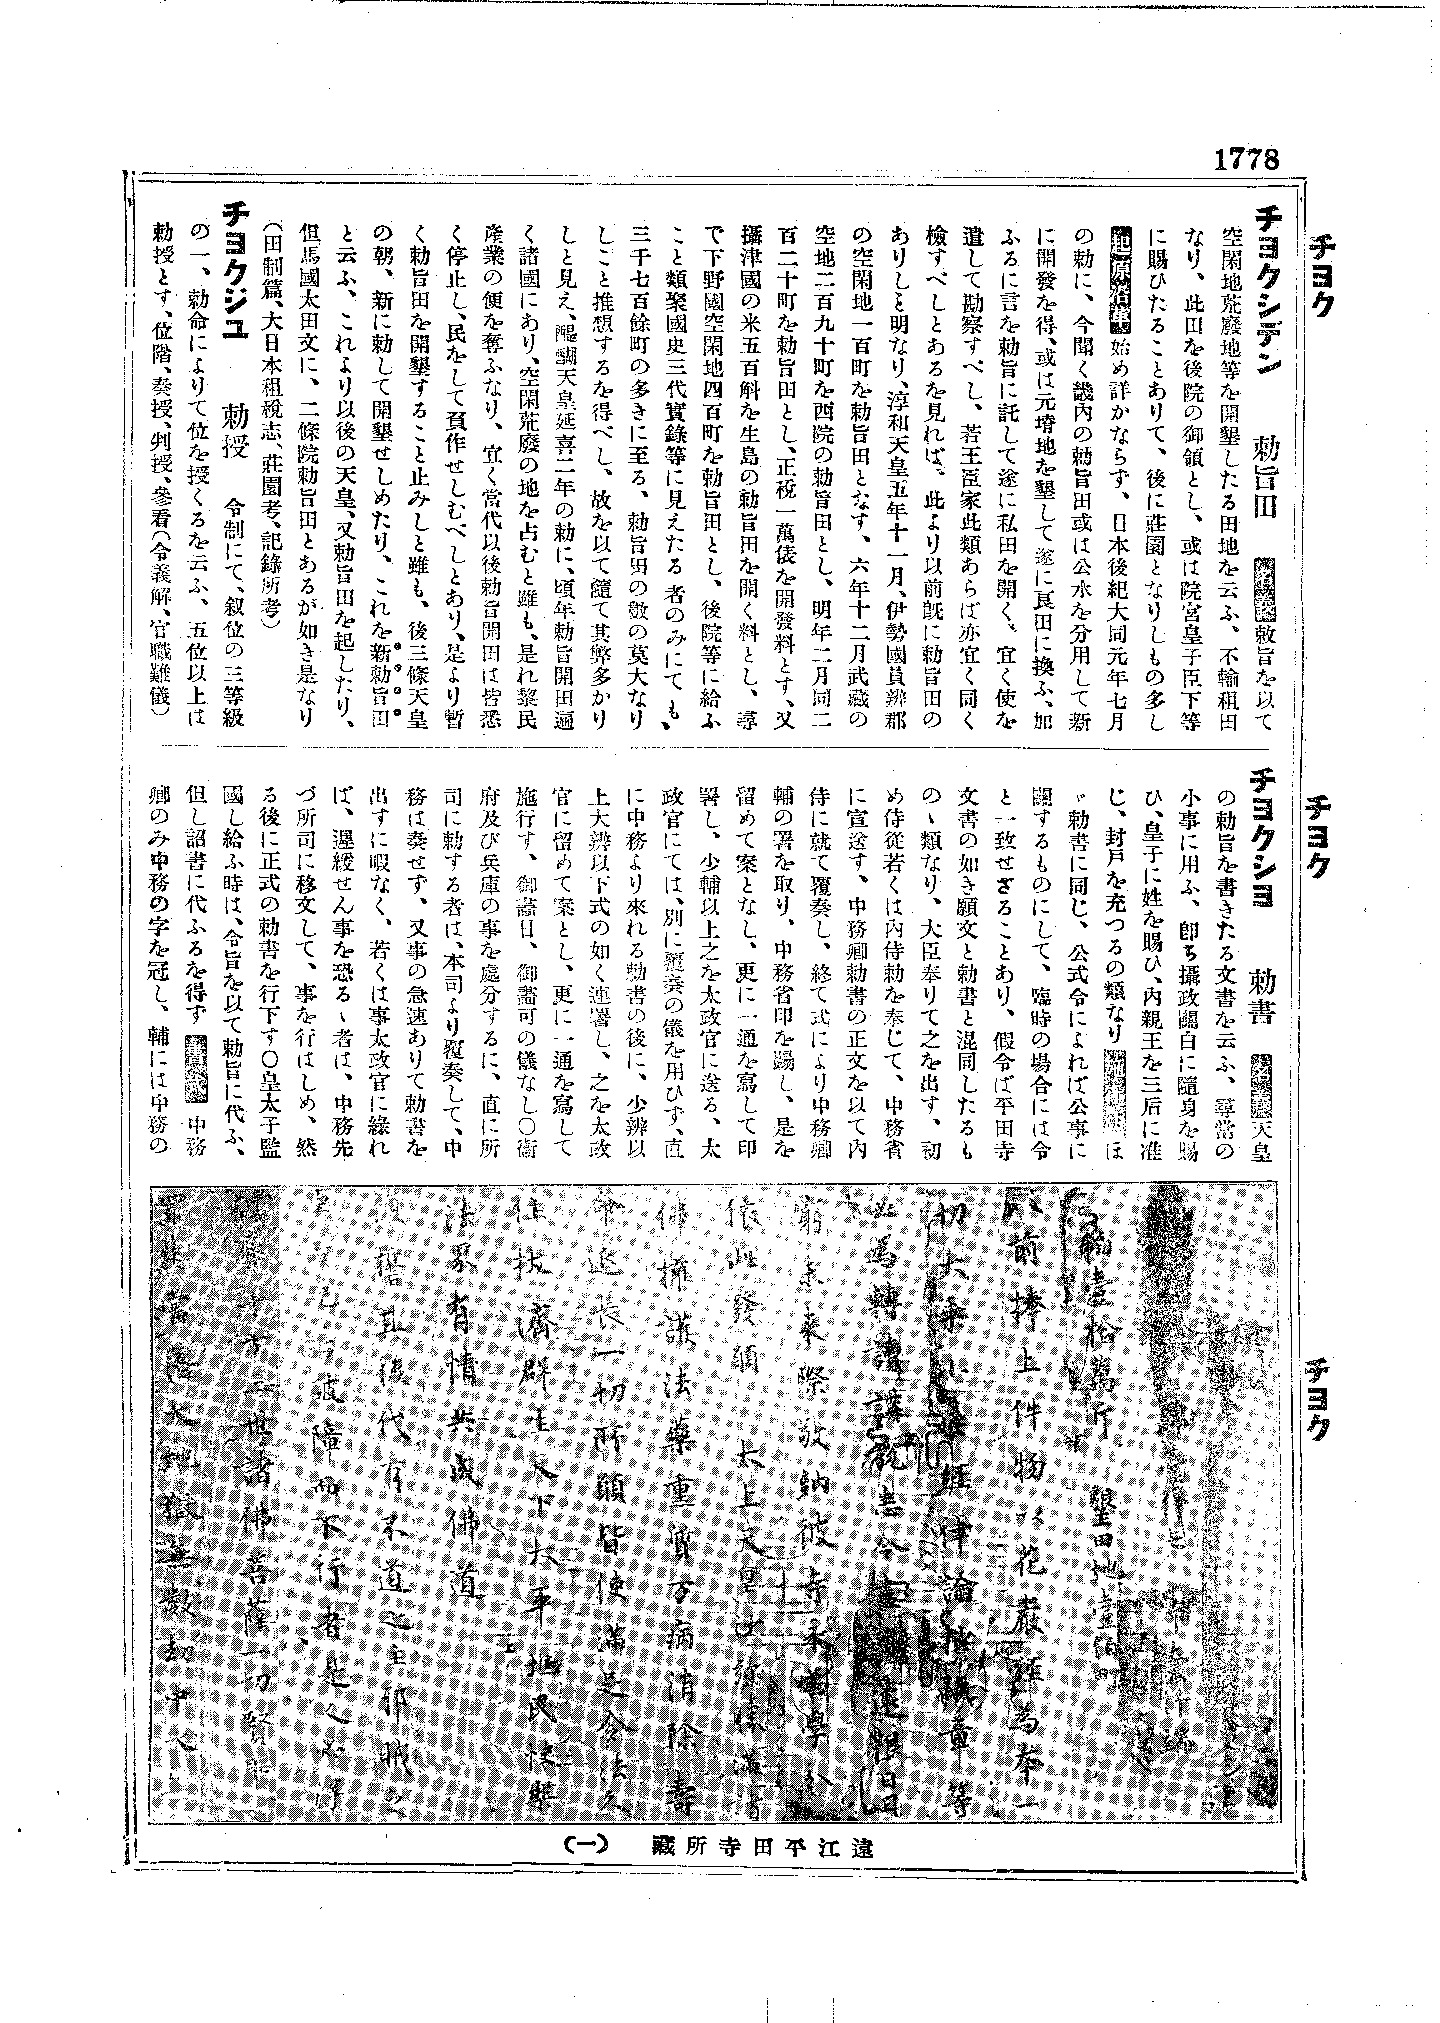 1778
チヨク
チヨクシデン 勅旨田 名義 敕旨を以て
空閑地荒廢地等を開墾したる田地を云ふ、不輸租田
なり、此田を後院の御領とし、或は院宮皇子臣下等
に賜ひたることありて、後に莊園となりしもの多し
起原沿革 始め詳かならず、日本後紀大同元年七月
の勅に、今聞く畿內の勅旨田或は公水を分用して新
に開發を得、或は元堉地を墾して遂に良田に換ふ、加
ふるに言を勅旨に託して遂に私田を開く、宜く使を
遣して勘察すべし、若王臣家此類あらば亦宜く同く
檢すべしとあるを見れば、此より以前既に勅旨田の
ありしこと明なり、淳和天皇五年十一月、伊勢國員辨郡
の空閑地一百町を勅旨田となす、六年十二月武藏の
空地二百九十町を西院の勅旨田とし、明年二月同二
百二十町を勅旨田とし、正稅一萬俵を開發料とす、又
攝津國の米五百斛を生島の勅旨田を開く料とし、尋
で下野國空閑地四百町を勅旨田とし、後院等に給ふ
こと類聚國史三代實錄等に見えたる者のみにても、
三千七百餘町の多きに至る、勅旨田の數の莫大なり
しこと推想するを得べし、故を以て隨て其弊多かり
しと見え、醍醐天皇延喜二年の勅に、頃年勅旨開田遍
く諸國にあり、空閑荒廢の地を占むと雖も、是れ黎民
產業の便を奪ふなり、宜く當代以後勅旨開田は皆悉
く停止し、民をして負作せしむべしとあり、是より暫
く勅旨田を開墾すること止みしと雖も、後三條天皇
の朝、新に勅して開墾せしめたり、これを新勅旨田
と云ふ、これより以後の天皇、又勅旨田を起したり、
但馬國太田文に、二條院勅旨田とあるが如き是なり
(田制篇、大日本租稅志、莊園考、記錄所考)
チヨクジユ 勅授 令制にて、叙位の三等級
の一、勅命によりて位を授くるを云ふ、五位以上は
勅授とす、位階、奏授、判授、參看(令義解、官職難儀)
チヨク
チヨクシヨ 勅書 名義 天皇
の勅旨を書きたる文書を云ふ、尋常の
小事に用ふ、卽ち攝政關白に隨身を賜
ひ、皇子に姓を賜ひ、內親王を三后に准
じ、封戸を充つるの類なり ほ
ゞ勅書に同じ、公式令によれば公事に
關するものにして、臨時の場合には令
と一致せざることあり、假令ば平田寺
文書の如き願文と勅書と混同したるも
の、類なり、大臣奉りて之を出す、初
め侍從若くは內侍勅を奉じて、中務省
に宣送す、中務卿勅書の正文を以て內
侍に就て覆奏し、終て式により中務卿
輔の署を取り、中務省印を踢し、是を
留めて案となし、更に一通を寫して印
署し、少輔以上之を太政官に送る、太
政官にては、別に覆奏の儀を用ひず、直
に中務より來れる勅書の後に、少辨以
上大辨以下式の如く連署し、之を太政
官に留めて案とし、更に一通を寫して
施行す、御畵日、御畵可の儀なし〇衞
府及び兵庫の事を處分するに、直に所
司に勅する者は、本司より覆奏して、中
務は奏せず、又事の急速ありて勅書を
出すに暇なく、若くは事太政官に緣れ
ば、遲緩せん事を恐るゝ者は、中務先
づ所司に移文して、事を行はしめ、然
る後に正式の勅書を行下す〇皇太子監
國し給ふ時は、令旨を以て勅旨に代ふ、
但し詔書に代ふるを得ず 中務
卿のみ中務の字を冠し、輔には中務の
チヨク
墾田地壹
前捧上件物以花嚴經爲本一
切大乘 經律論 章等
必爲轉讀講說
窮未來際敬納彼寺
依此發願太上天皇
佛擁護法藥重質万病消除壽
命延長一切所願皆使滿足令法久
住拔濟群生天下太平 民快樂
法界有情共成佛道
後代有不道之主邪賊之
障而不行者是人
世諸佛菩薩一切賢
大地獄無數劫中
遠江平田寺所藏 (一)